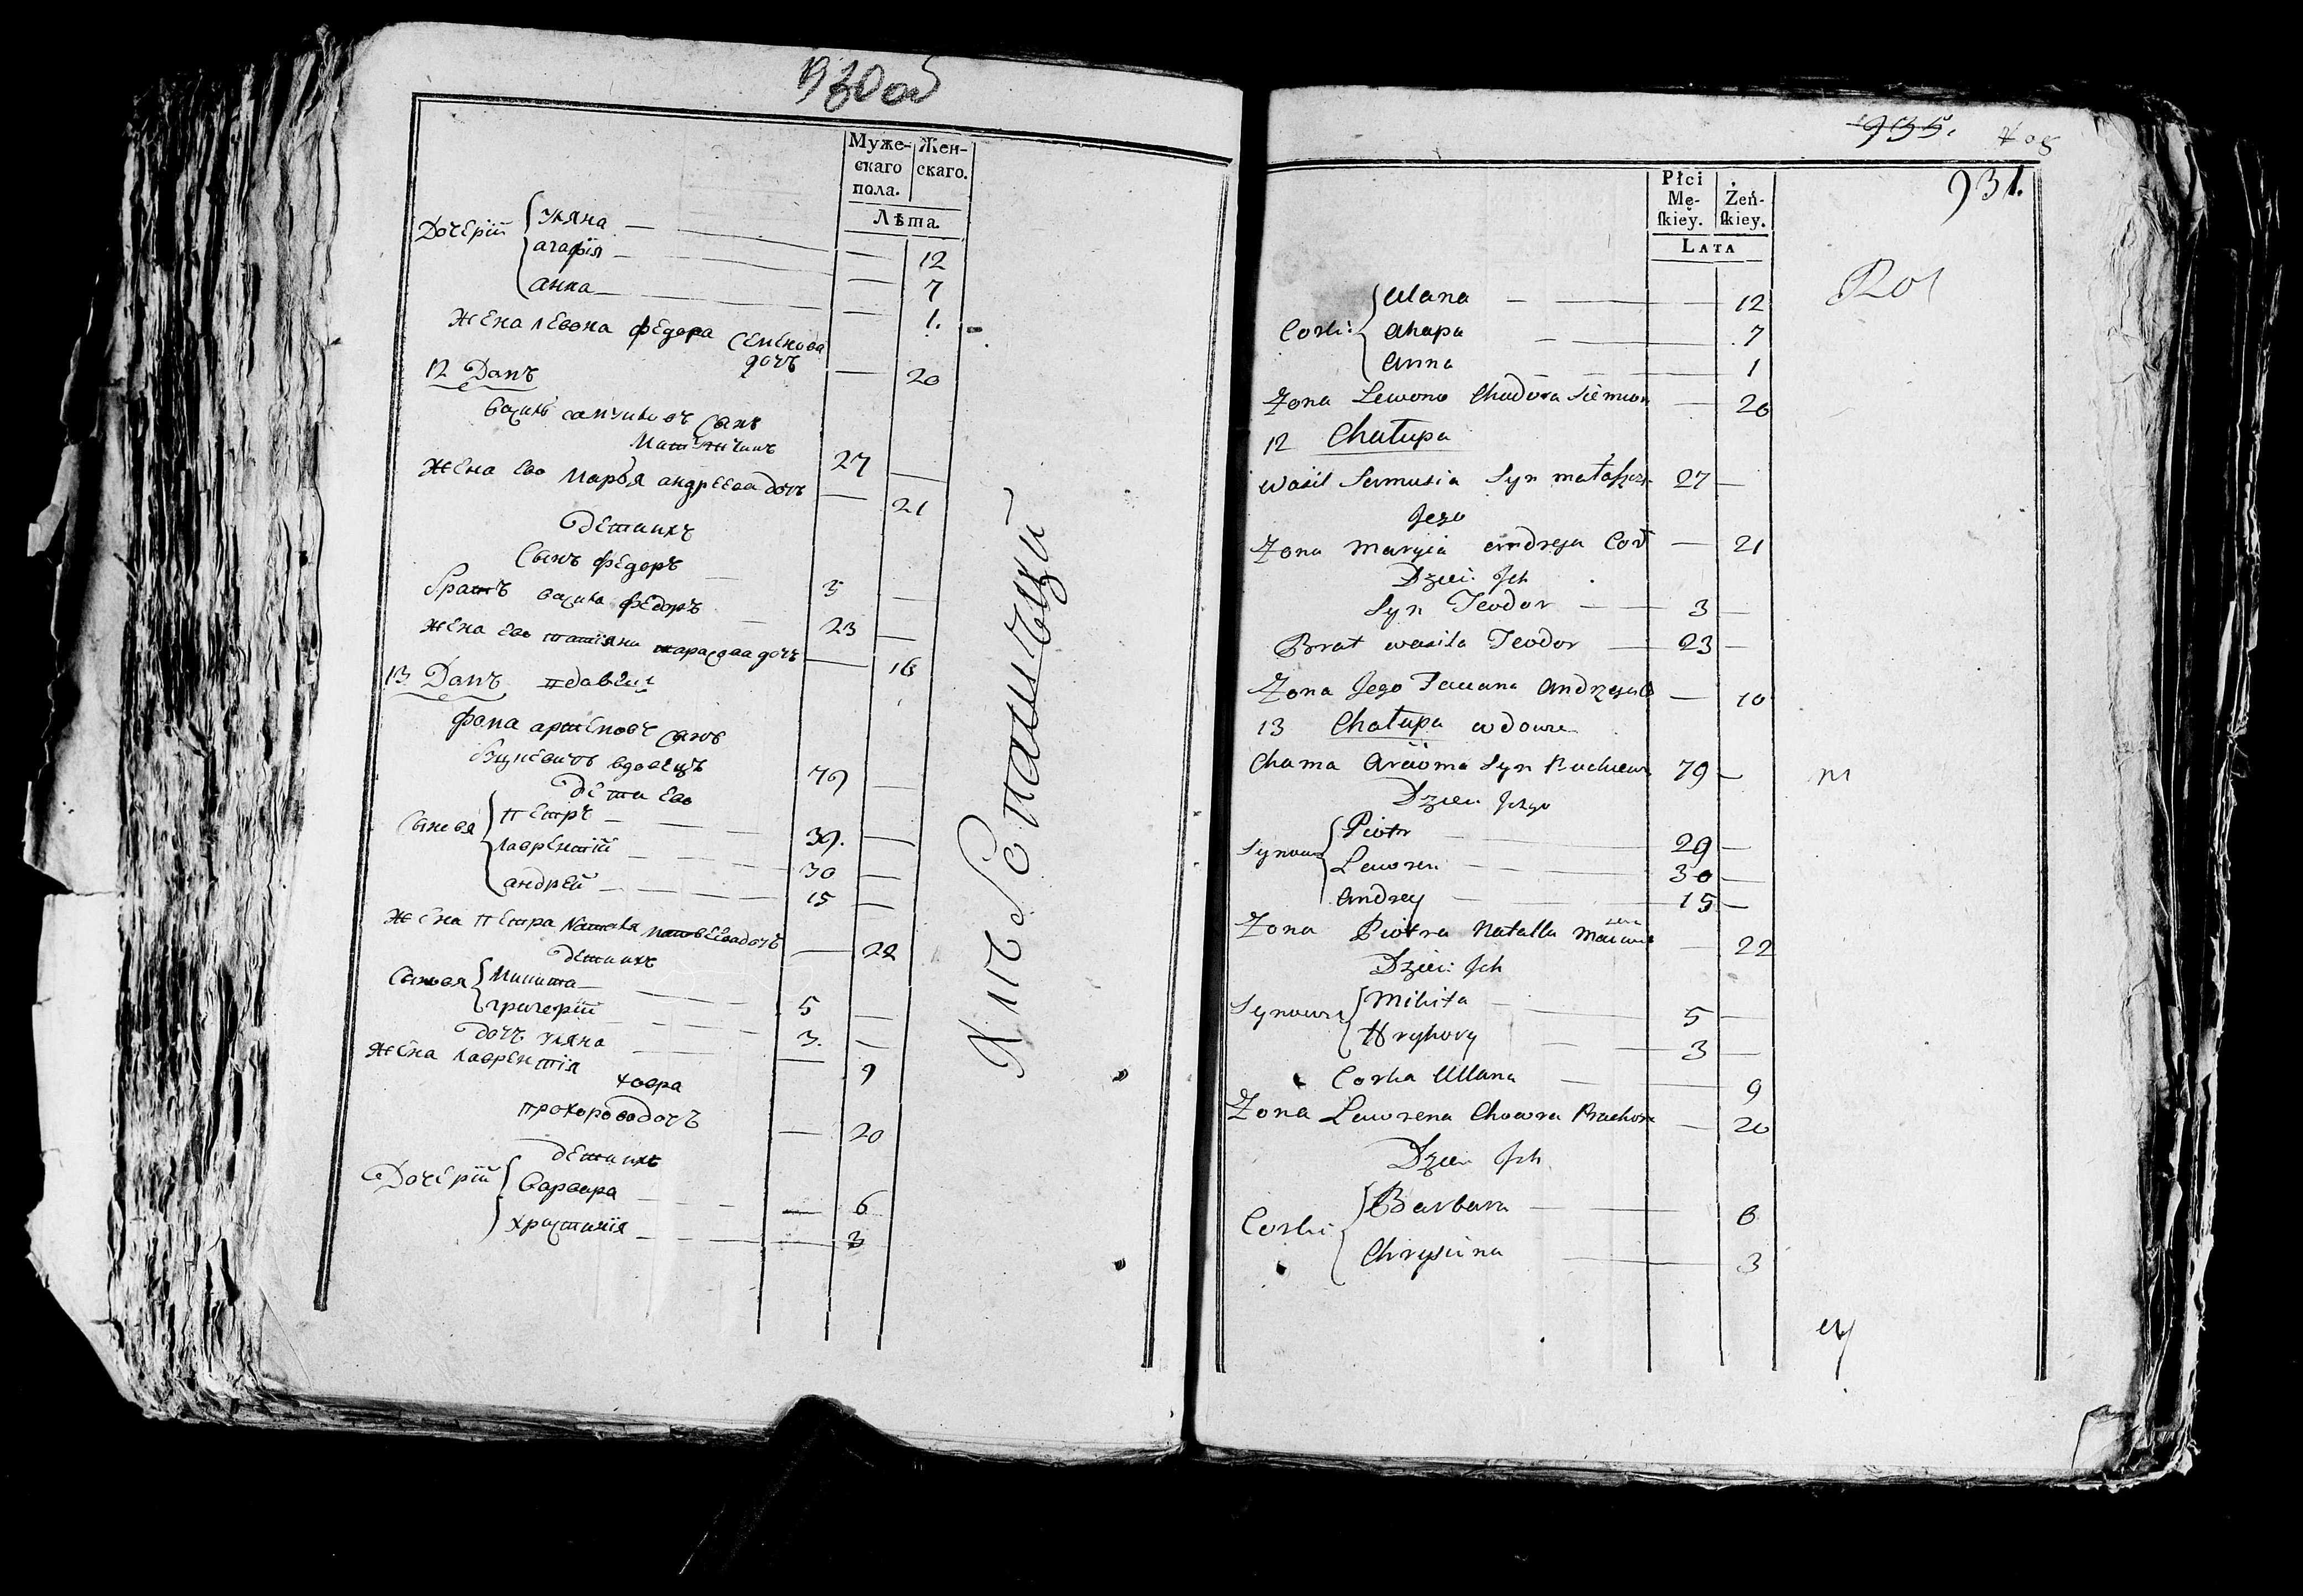 930 об
Муже-
скаго
пола.
Жен-
скаго.
Лѣта.
Дочерiи
Уляна — — 12
агафiя — — 7
анна — — 1.
жена левона федора семенова
дочъ — 20
12 Домъ
василь самуиловъ сынъ
27 —
жена ево марья андреева дочъ — 21
дети ихъ
сынъ федоръ — 3 —
братъ васила федоръ — 23 —
жена ево татiяна тарасова дочъ — 16
13 Домъ
фома артемовъ сынъ
вдовецъ 79 —
дети ево
сыновя
петръ — 39. —
лаврентiй — 30 —
андрей — 15 —
жена петра наталя матвеева дочъ — 22
дети ихъ
сыновя
микита — 5 —
григорiй — 3. —
дочъ уляна — 9
жена лаврентiя
ховра
прохорова дочъ — 20
дети ихъ
Дочерiи
варвара — — 6
христинiя — — 3
935.
931.
Płci
Mę-
ſkiey.
Żeń-
ſkiey.
LATA
Corki:
Ulana — — 12
Ahapa — — 7
Anna — — 1
Zona Lewona Chwdora Siemion — 20
12 Chałupa
Wasil Samusia Syn 27 —
Jego
Zona Maryia Andreja Cor — 21
Dzieci Jch
Syn Teodor — 3 —
Brat wasila Teodor — 23 —
Zona Jego Taciana — 10
13 Chałupa wdowie
Chama Arcioma Syn 79 —
Dzieci Jego
Synowie
Piotr — 29 —
Lawren — 30 —
Andrey — 15 —
Zona Piotra Natalla — 22
Dzieci Jch
Synowie
Mikita — 5 —
Hryhory — 3 —
Corka Ullana — 9
Zona Lawrena Chowra Prachora — 20
Dzieci Jch
Corki
Barbara — — 6
Chryscina — — 3